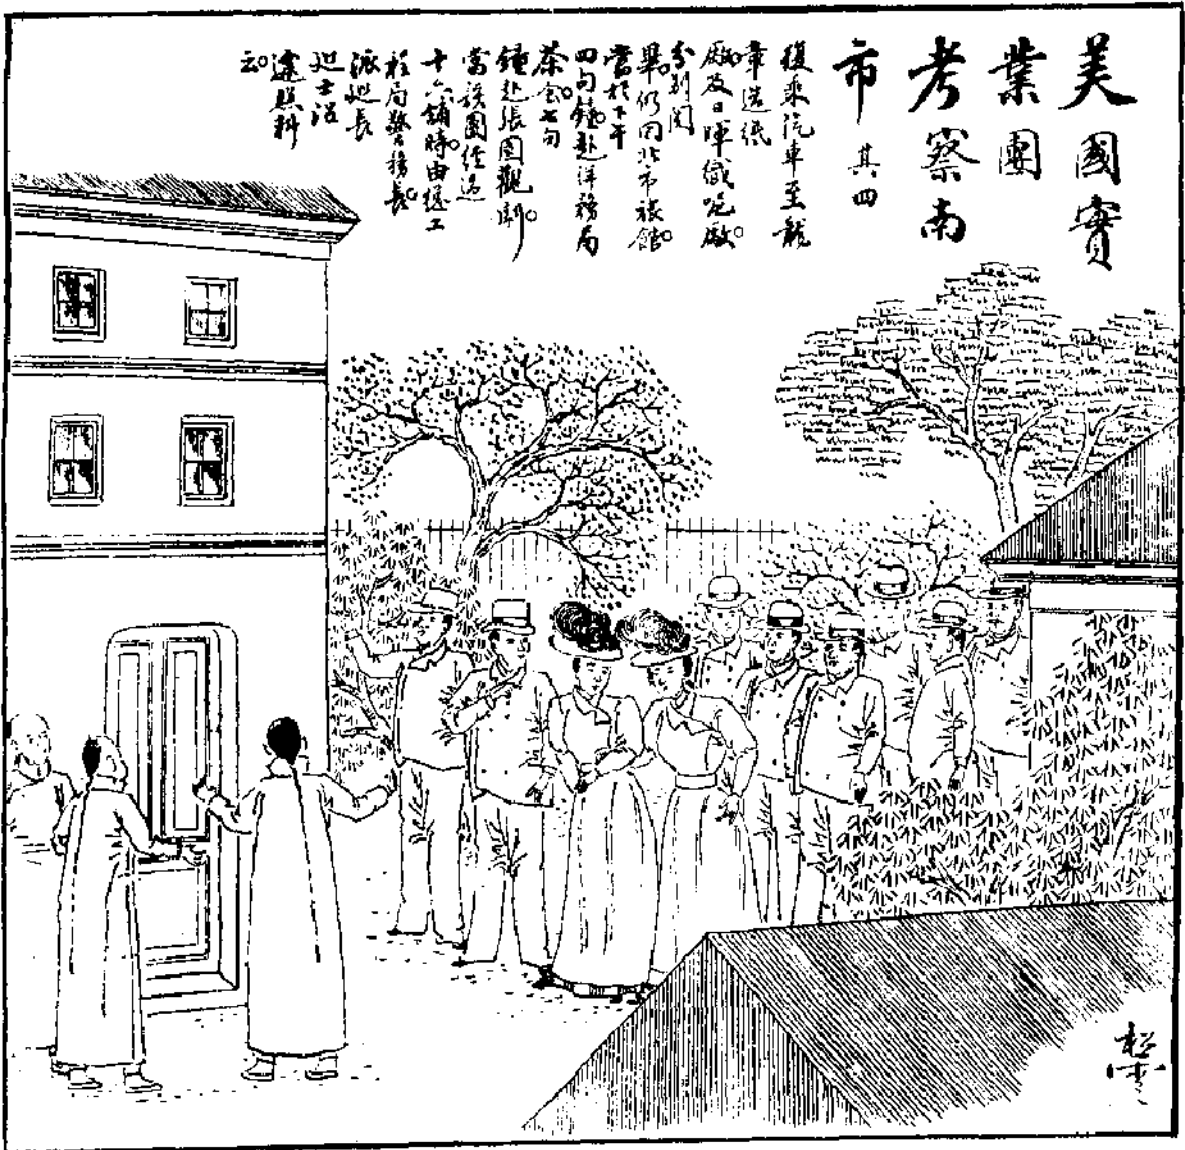 美國實
業團
考察南
市 其四
復乘汽車至龍
章造紙
廠及日暉織呢廠。
分別閱
畢。仍回北市旅館。
當於下午
四句鐘。赴洋務局
茶會。七句
鐘赴張園觀劇。
當該團經過
十六鋪時。由總工
程局警務長。
派巡長
巡士沿
途照料
云。
松雲